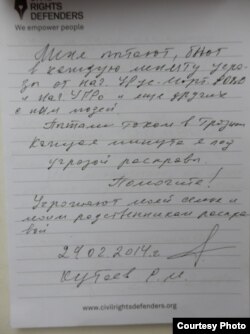 RIGHTS
DEFENDERS
We empower people
Меня пытают, бьют
в каждую минуту угро-
за от нач. Урус-Март. РОВД
и нач УПРо и еще других
с ним людей.
Пытали током в Грозном
каждая минута я под
угрозой расправы
Помогите!
Угрожают моей семье и
моим родственникам распра-
вой
24.02.2014г.
Кутаев Р.М.
www.civilrightsdefenders.org
Courtesy Photo